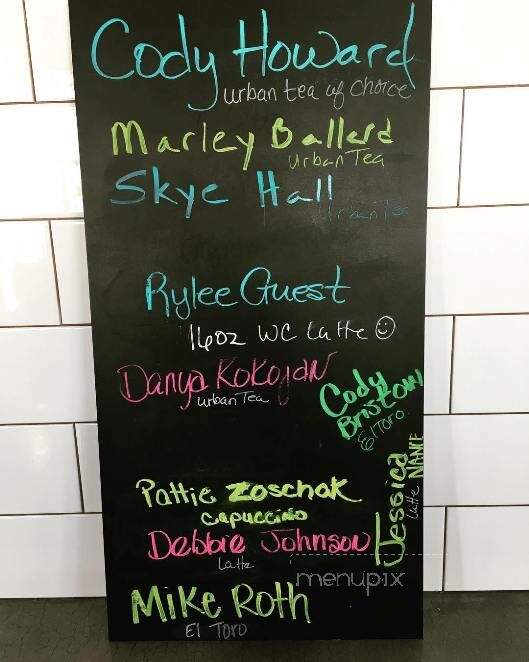 Cody Howard
urban tea of choice
Marley Ballard
Urban Tea
Skye Hall
Urban Tea
Rylee Guest
16oz WC Latte ☺
Danya Kokojan
urban Tea
Cody
Bristow
El Toro
Jessica
NANCE
Latte
Pattie Zoschak
Capuccino
Debbie Johnson
Latte
menupix
Mike Roth
El Toro